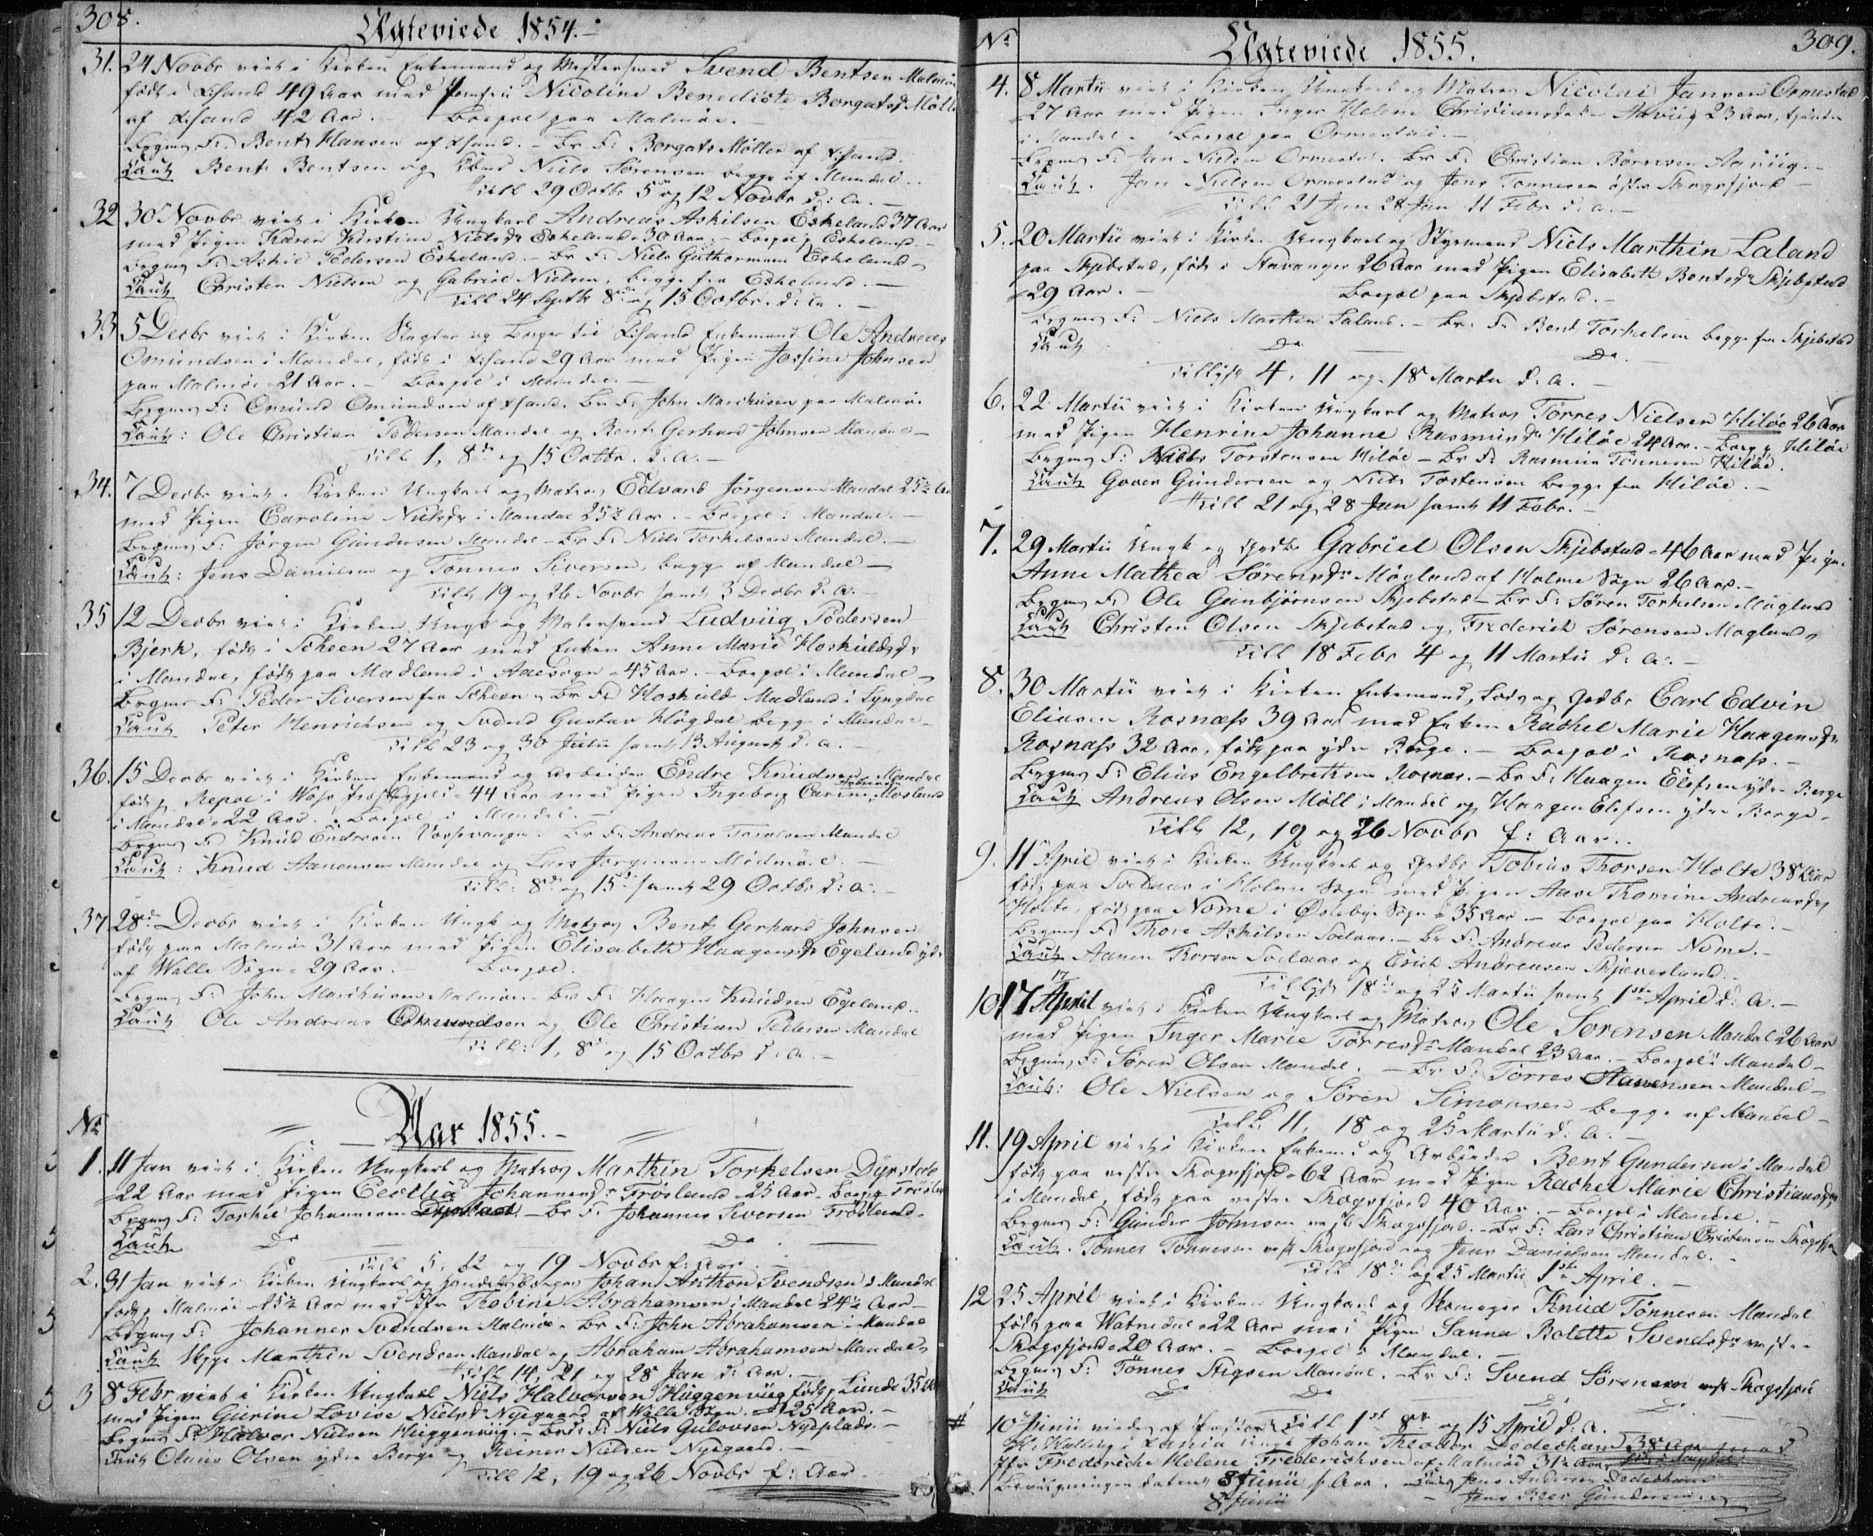 308.
Ægteviede 1854.
31. 24 Novbr viet i Kirken Enkemand og Svend Bentsen Malmøe
født i Xsand 49 Aar med Jomfru Nicoline Benedicte Borgatsdr Møll
af Xsand 42 Aar. Bopæl paa Malmøe.
Brgms F: Bent Hansen af Xsand. Br F: Borgats Møller af Xsand.
Caut Bent Bentsen og Niels Sørensen begge af Mandal.
Till 29 Octb 5 og 12 Novbr d: a.
32 30 Novbr viet i Kirken Ungkarl Andreas Askilsen Eskeland 37 Aar
med Pigen Karen Kirstine Nielsdr Eskeland 30 Aar. Bopæl Eskeland.
Brgms F: Askil Pedersen Eskeland. Br F: Niels Guthormsen Eskeland
Caut Christen Nielsen og Gabriel Nielsen, begge fra Eskeland.
Till 24 Septb 8de og 15 Octbr. d: a.
33 5 Decbr viet i Kirken og Borger til Xsand Enkemand Ole Andreas
Omundsen i Mandal, født i Xsand 29 Aar med Pigen Josine Johnsen
paa Malmøe 21 Aar. Bopæl i Mandal.
Brgms F: Omund Omundsen af Xsand. Br F: John Marcussen paa Malmøe
Caut: Ole Christian Pedersen Mandal og Bent Gerhard Johnsen Mandal
Till 1, 8de og 15 Octbr. d. a.
34. 7 Decbr viet i Kirken Ungkarl og Matros Edvard Jørgensen Mandal 25½ Aar
med Pigen Caroline Nielsdr i Mandal 25½ Aar. Bopæl i Mandal.
Brgms F: Jørgen Gundersen Mandal Br F: Niels Torkelsen Mandal.
Caut: Jens Danielsen og Tønnes Siversen, begge af Mandal
Till 19 og 26 Novbr samt 3 Decbr d: a.
35 12 Decbr viet i Kirken Ungk og Malersvend Ludvig Pedersen
Bjerk, født i Scheen 27 Aar med Enken Anne Marie Hoskuldsdr
i Mandal, født paa Madland i Aaesogn 45 Aar. Bopæl i Mandal
Brgms F: Peder Siversen fra Scheen Br F: Hoskuld Madland i Lyngdal
Caut Peter Henrichsen og Svend Gustav Høgdal begge i Mandal
Till 23 og 30 Julii samt 13 August d. a.
36. 15 Decbr viet i Kirken Enkemand og Arbeider Endre Knudsen Mandal
født i Woss Præstegjeld 44 Aar med Pigen Ingeborg Carine Mosland
i Mandal 22 Aar. Bopæl i Mandal.
Brgms F: Knud Endresen Vossevangen Br F: Andreas Mandal
Caut: Knud Aanensen Mandal og Lars Jørgensen Mandal.
Till: 8de og 15de samt 29 Octbr d: a:
37. 28de Decbr viet i Kirken Ungk og Matros Bent Gerhard Johnsen
født paa Malmøe 31 Aar med Pigen Elisabeth Haagensdr Egeland ydre
af Walle Sogn 29 Aar. Bopæl.
Brgms F: John Marcussen Malmøe Br F: Haagen Knudsen Egeland.
Caut Ole Andreas Omundsen og Ole Christian Pedersen Mandal
Till: 1, 8de og 15 Octbr d: a.
No Aar 1855.
1. 11 Jan viet i Kirken Ungkarl og Matros Marthin Torkelsen Dyrstad
22 Aar med Pigen Cecilia Johannesdr Frøsland 25 Aar. Bopæl Frøsland
Brgms F: Torkel Johannesen Dyrstad Br F: Johannes Siversen Frøsland.
Caut Do Do
Till 5, 12 og 19 Novbr f: Aar
2. 31 Jan viet i Kirken Ungkarl og Handelsborger Johan Anthon Svendsen i Mandal
født Malmøe 25½ Aar med Jfr Thobine Abrahamsen i Mandal 24½ Aar
Brgms F: Johannes Svendsen Malmøe Br F: John Abrahamsen i Mandal
Caut Marthin Svendsen Mandal og Abraham Abrahamsen Mandal
Till 14, 21 og 28 Jan d: Aar.
3 8 Febr viet i Kirken Ungkarl Niels Halvorsen Huggenvig født Lunde 35 Aar
med Pigen Gurine Lovise Nielsdr Nyegaard af Walle Sogn 25 Aar.
Brgms F: Halvor Nielsen Huggenvig. Brds F: Niels Gulovsen Nyeplads.
Caut Olaus Olsen ydre Berge og Reiner Nielsen Nyegaard.
Till 12, 19 og 26 Novbr f: Aar
No Ægteviede 1855. 309.
4. 8 Martii viet i Kirken Ungkarl og Matros Nicolai Jansen Ormestad
27 Aar med Pigen Inger Helene Christiansdatter Aavig 23 Aar, tjener
i Mandal. Bopæl paa Ormestad.
Brgms F: Jan Nielsen Ormestad. Br F: Christian Aavig.
Caut. Jan Nielsen Ormestad og Jens Tønnesen østre Skogsfjord
Till 21 Jan 28 Jan 11 Febr d: a.
5. 20 Martii viet i Kirken Ungkarl og Styrmand Niels Marthin Laland
paa Skjebstad, født i Stavanger 26 Aar med Pigen Elisabeth Bentsdr Skjebstad
29 Aar. Bopæl paa Skjebstad.
Brgms F: Niels Marthin Laland. Br: F: Bent Torkelsen begge fra Skjebstad
Caut Do Do.
Tillyst 4, 11 og 18 Martii d. a.
6. 22 Martii viet i Kirken Ungkarl og Matros Tørres Nielsen Hiløe 26 Aar
med Pigen Henrine Johanne Rasmusdr Hiløe 24 Aar. Bopæl Hiløe
Brgms F: Niels Torstensen Hiløe Br F: Rasmus Tønnesen Hiløe.
Caut Goven Gundersen og Niels Tostensen begge fra Hiløe.
Till 21 og 28 Jan samt 11 Febr.
7. 29 Martii Ungk og Gaardbr Gabriel Olsen Skjebstad 46 Aar med Pigen
Anne Mathea Sørensdr Møgland af Holme Sogn 26 Aar.
Brgms F: Ole Gunbjørnsen Skjebstad Br F: Søren Torkelsen Møgland
Caut Christen Olsen Skjebstad og Frederick Sørensen Møgland
Till 18 Febr 4 og 11 Martii d: a.
8. 30 Martii viet i Kirken Enkemand, Lods og Gaardbr Carl Edvin
Eliasen Rosnæss 39 Aar med Enken Rachel Marie Haagensdr
Rosnæss 32 Aar, født paa ydre Berge. Bopæl i Rosnæss.
Brgms F: Elias Engelbrethsen Rosnæs. Br F: Haagen Elefsen ydre Berge
Caut Andreas Olsen Møll i Mandal og Haagen Elefsen ydre Berge.
Till 12, 19 og 26 Novbr f: Aar.
9. 11 April viet i Kirken Ungkarl og Gaardbr Tobias Thorsen Holte 38 Aar
født paa Solaas i Holme Sogn med Pigen Aase Thomine Andreasdr
Holte, født paa Nome i Øslebye Sogn 35 Aar Bopæl paa Holte.
Brgms F: Thore Askilsen Solaas. Br F: Andreas Pedersen Nome.
Caut Aanen Thorsen Solaas og Erich Andreasen Skjæveland.
Tillyst 18de og 25 Martii samt 1ste April d: a.
10 17 April viet i Kirken Ungkarl og Matros Ole Sørensen Mandal 26 Aar
med Pigen Inger Marie Tørresdr Mandal 23 Aar. Bopæl i Mandal
Brgms F: Søren Olsen Mandal. Br F: Tørres Aanensen Mandal
Caut: Ole Nielsen og Søren Simonsen begge af Mandal
Till 11, 18 og 25 Martii d: a.
11. 19 April viet i Kirken Enkemd og Arbeider Bent Gundersen i Mandal
født paa vestre Skogsfjord 62 Aar med Pigen Rachel Marie Christiansdr
i Mandal, født paa vestre Skogsfjord 40 Aar. Bopæl i Mandal.
Brgms F: Gunder Johnsen vest Skogsfjord. Br F: Lars Christian Christensen Skogsfj
Caut. Tønnes Tønnesen vest Skogsfjord og Jens Danielsen Mandal.
Till 18de og 25 Martii 1ste April.
12 25 April viet i Kirken Ungkarl og Skomager Knud Tønnesen Mandal
født paa Watnedal 22 Aar med Pigen Sanna Bolette Svendsdr vestre
Skogsfjord 20 Aar. Bopæl i Mandal.
Brgms F: Tønnes Stigsen Mandal. Br F: Svend Sørensen vest Skogsfjord
Caut Do Do
Till 1ste 8de og 15 April d: a.
# 10 Junii viedes af Pastor Johan Theodor Dedekam 38 Aar med
Jfr Frederiche Helene Frederichsen af Malmøe 31½ Aar,
Bevilgningen dateret 8 Junii f Aar. Caut Jens Andersen Dedekam
8 Junii Jens Peer Gundersen